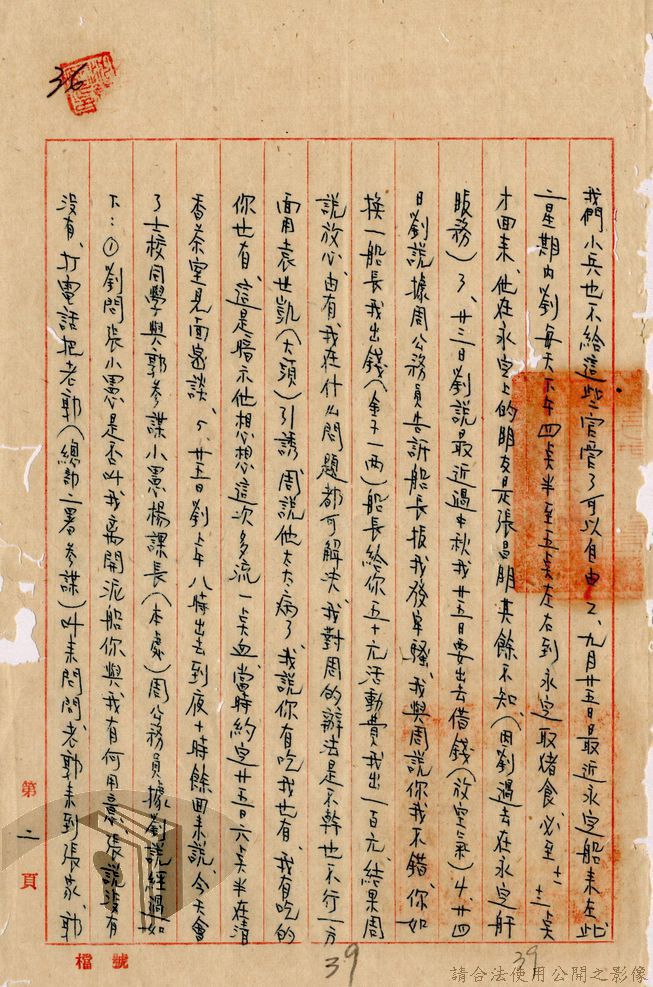 36
我們小兵也不給這些官管了可以自由 2、九月廿五日最近永定船來在此
二星期內劉每天下午四点半至五点左右到永定取猪食必至十、十一点
才回來、他在永定上的朋友是張昌明其餘不知（因劉過去在永定
服務）3、廿三日劉說最近過中秋我廿五日要出去借錢（放空氣）4、廿四
日劉說據周公務員告訴船長扳我發牢騷、我與周說你我不錯、你如
換一船長我出錢（金子一兩）船長給你五十元活動費我出一百元、結果周
說放心、由有我在什么問題都可解决、我對周的辦法是不幹也不行一方
面用袁世凱（大頭）引誘 周說他太太病了 我說你有吃我也有、我有吃的
你也有、這是暗示他想想這次多流一点血、當時約定廿五日六点半在清
香茶室見面密談、5、廿五日劉上午八時出去到夜十時餘回來說、今天會
了士校同學與郭參謀小憲楊課長（本處）周公務員據劉說經過如
下：①劉問張小憲是否叫我离開派船你與我有何用意、張說沒有
沒有、打電話把老郭（總部二署參謀）叫來問問、老郭來到張家、郭
第二頁
檔號
39
39
請合法使用公開之影像